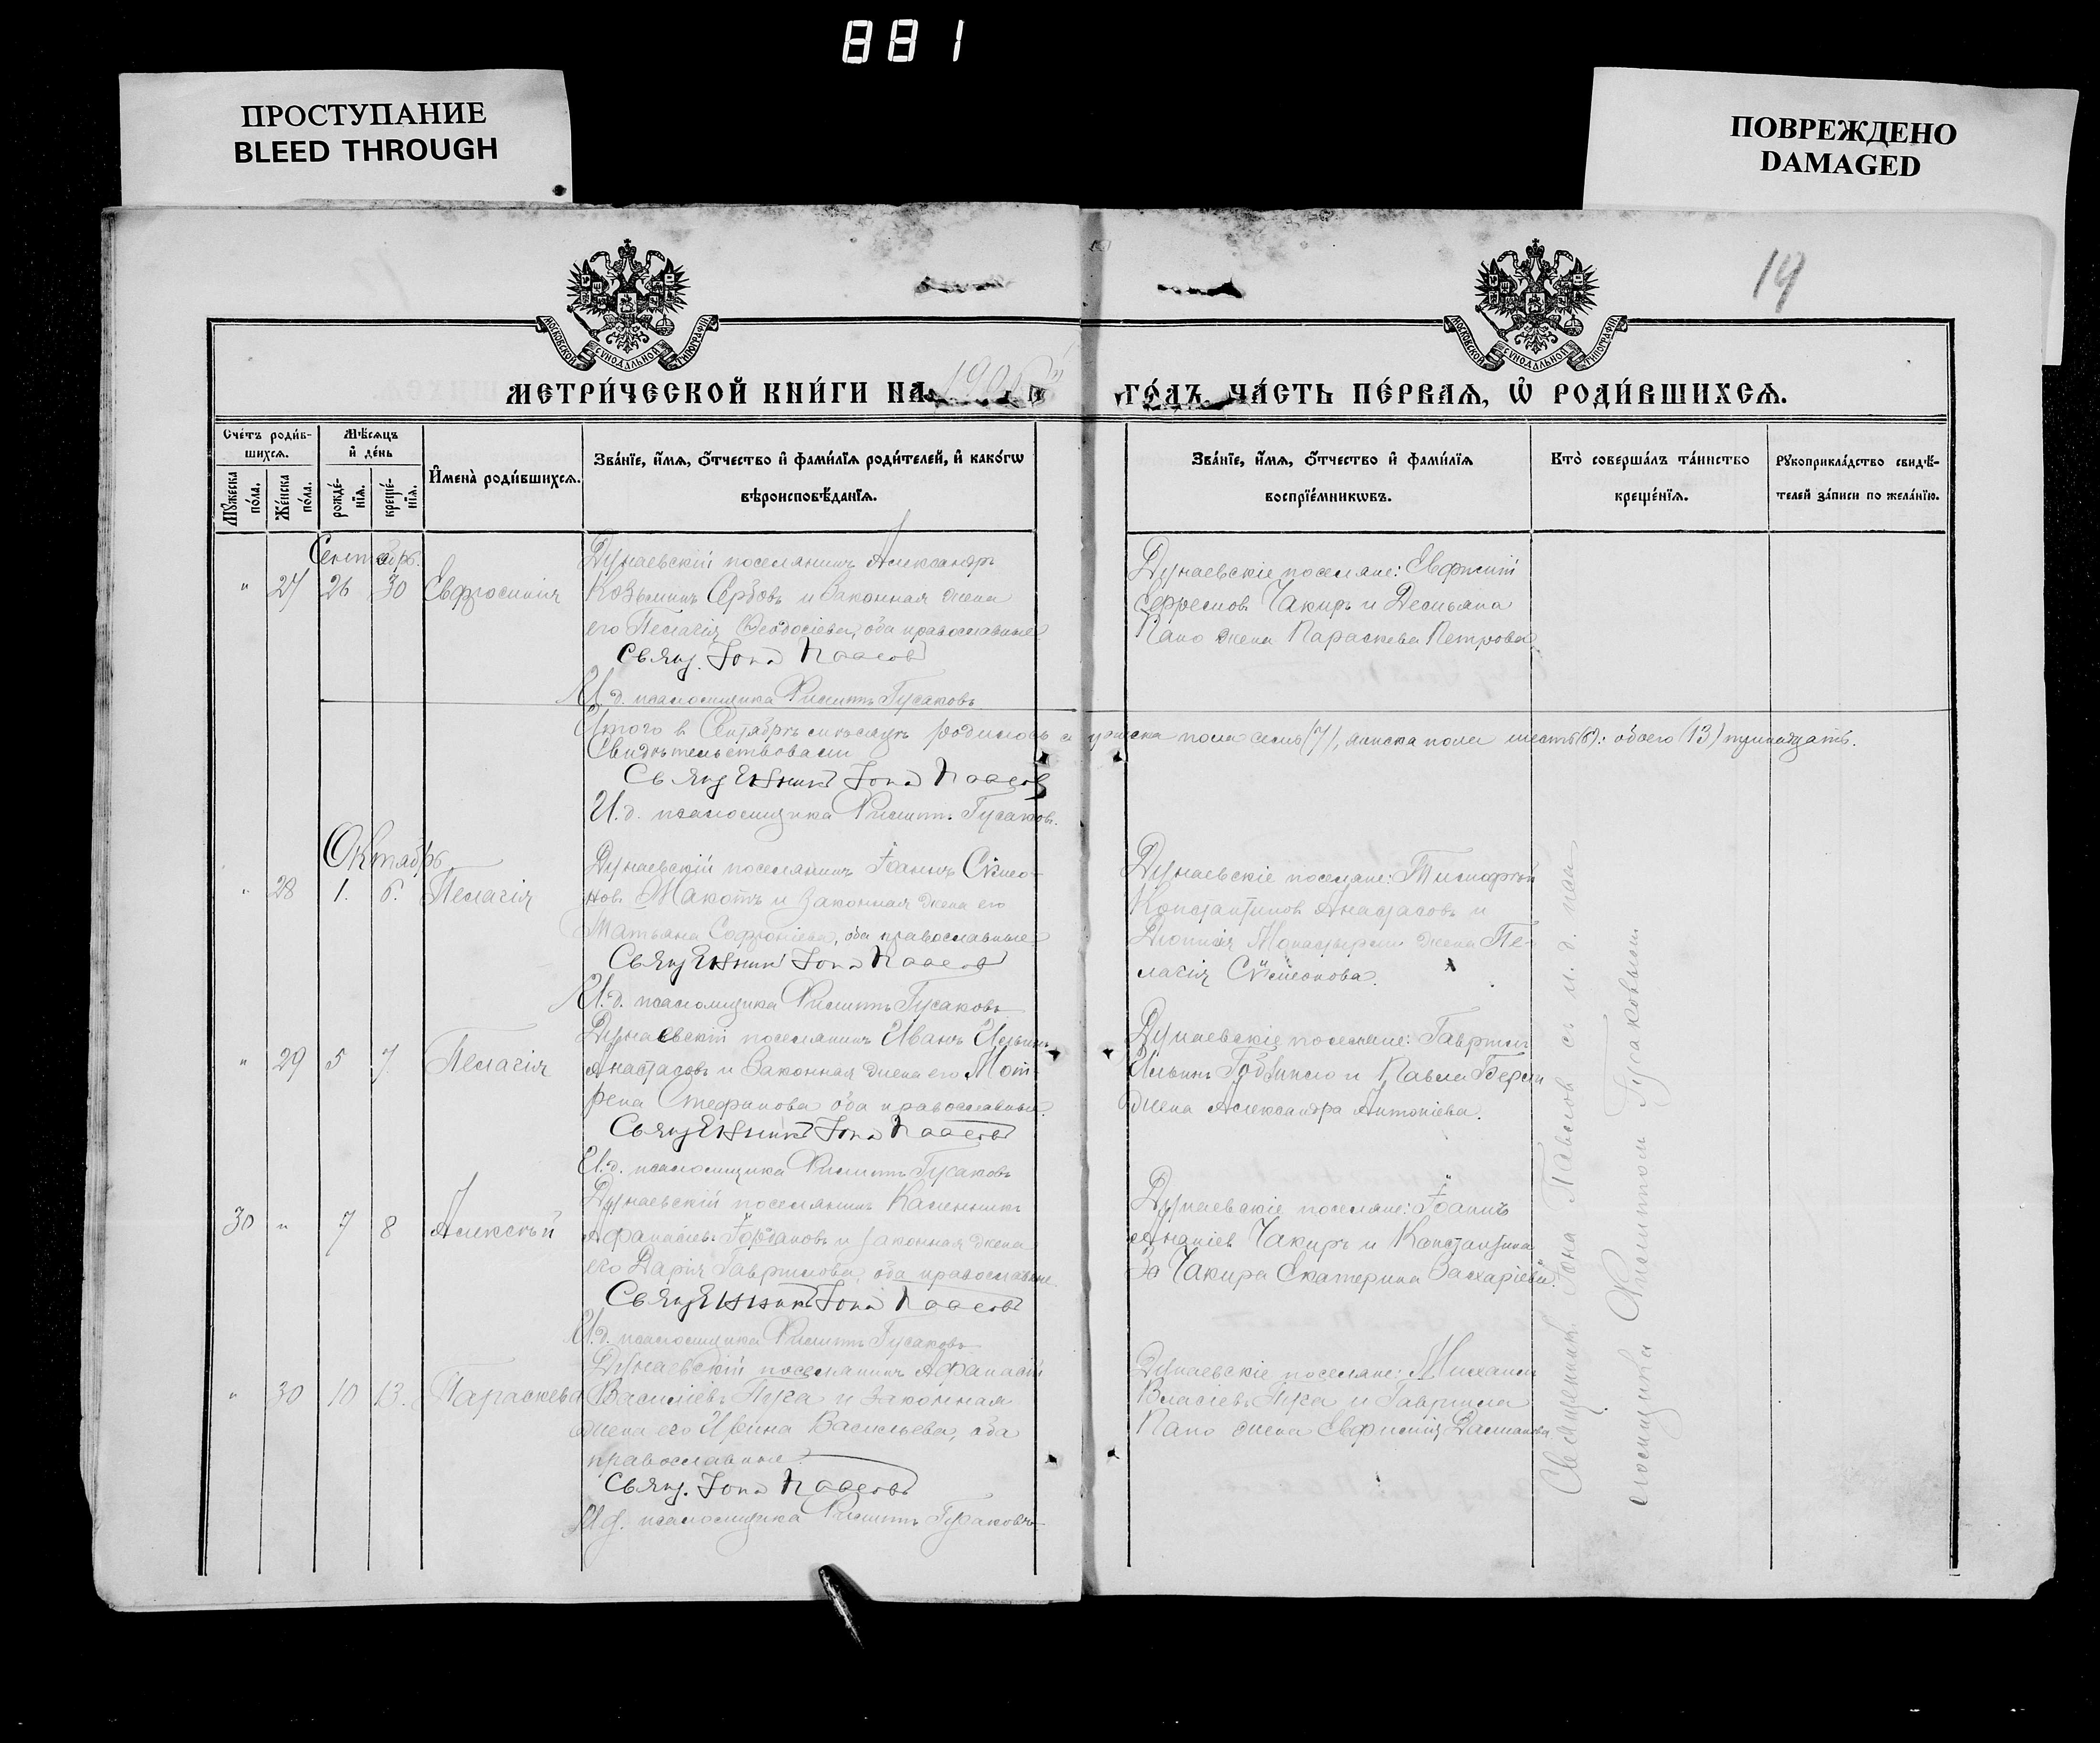 881
ПРОСТУПАНИЕ
BLEED THROUGH
ПОВРЕЖДЕНО
DAMAGED
19
МОСКОВСКОЙ СУНОДАЛЬНОЙ ТИПОГРАФІИ
МОСКОВСКОЙ СУНОДАЛЬНОЙ ТИПОГРАФІИ
МЕТРИ́ЧЕСКОЙ КНИ́ГИ НА 190
ГО́ДЪ, ЧА́СТЬ ПЕ́РВАЯ, Ѽ РОДИ́ВШИХСЯ.
Сче́тъ роди́в-
шихся.
Мꙋ́жеска по́ла.
Же́нска по́ла.
Мѣ́сяцъ
и҆ де́нь
рожде́-
нїя.
креще́-
нїя.
И҆мена̀ роди́вшихся.
Зва́нїе, и҆́мя, ѻ҆́тчество и҆ фами́лїя роди́телей, и҆ како́гѡ
вѣроисповѣ́данїя.
Зва́нїе, и҆́мя, ѻ҆́тчество и҆ фами́лїя
воспрїе́мникѡвъ.
Кто̀ соверша́лъ та́инство
креще́нїя.
Рꙋкоприкла́дство свидѣ́-
телей за́писи по жела́нїю.
Сентябрь.
" 27 26 30 Евфросинія
Дунаевскій поселянинъ Александръ
Козьминъ Сербовъ и законная жена
его Пелагія Ѳеодосіева, оба православные
Свящ. Іона Павлов
И. д. псаломщика Филиппъ Гусаковъ
Дунаевскіе поселяне: Евфимій
Ефремов Чакиръ и Демьяна
Папо жена Параскева Петрова
Итого в Сентябрѣ мѣсяцѣ родилось мужска пола семь (7), женска пола шесть (6): обоего (13) тринадцать.
Свидѣтельствовали
Священник Іона Павлов
И. д. псаломщика Филиппъ Гусаковъ.
Октябрь
" 28 1. 6. Пелагія
Дунаевскій поселянинъ Іоаннъ Сѵмео-
нов. Макотъ и законная жена его
Татьяна Софроніева, оба православные
Священник Іона Павлов
И. д. псаломщика Филиппъ Гусаковъ
Дунаевскіе поселяне: Тимофей
Константинов Анастасовъ и
Діонисія Монастырли жена Пе-
лагія Сѵмеонова.
" 29 5 7. Пелагія
Дунаевскій поселянинъ Иванъ Ильинъ
Анастасовъ и законная жена его Мот-
рена Стефанова оба православные.
Священник Іона Павлов
И. д. псаломщика Филиппъ Гусаковъ
Дунаевскіе поселяне: Гавріилъ
Ильинъ и Павла
жена Александра Антоніева.
30 " 7 8 Алексѣй
Дунаевскій поселянинъ Каленникъ
Афанасіевъ Іордановъ и законная жена
его Дарія Гавриилова, оба православные
Священник Іона Павлов
И. д. псаломщика Филиппъ Гусаковъ
Дунаевскіе поселяне: Іоаннъ
Ананіев Чакиръ и Константина
Чакира Екатерина Захаріева.
" 30 10 13. Параскева
Дунаевскій поселянинъ Афанасій
Василіевъ Пука и законная
жена его Ирина Васильева, оба
православные
Свящ. Іона Павлов
И. д. псаломщика Филиппъ Гусаковъ
Дунаевскіе поселяне: Михаилъ
Власіевъ Пука и Гавриила
Папо жена Евфимія
Священник Іона Павлов съ и. д. пса-
ломщика Филиппом Гусаковым